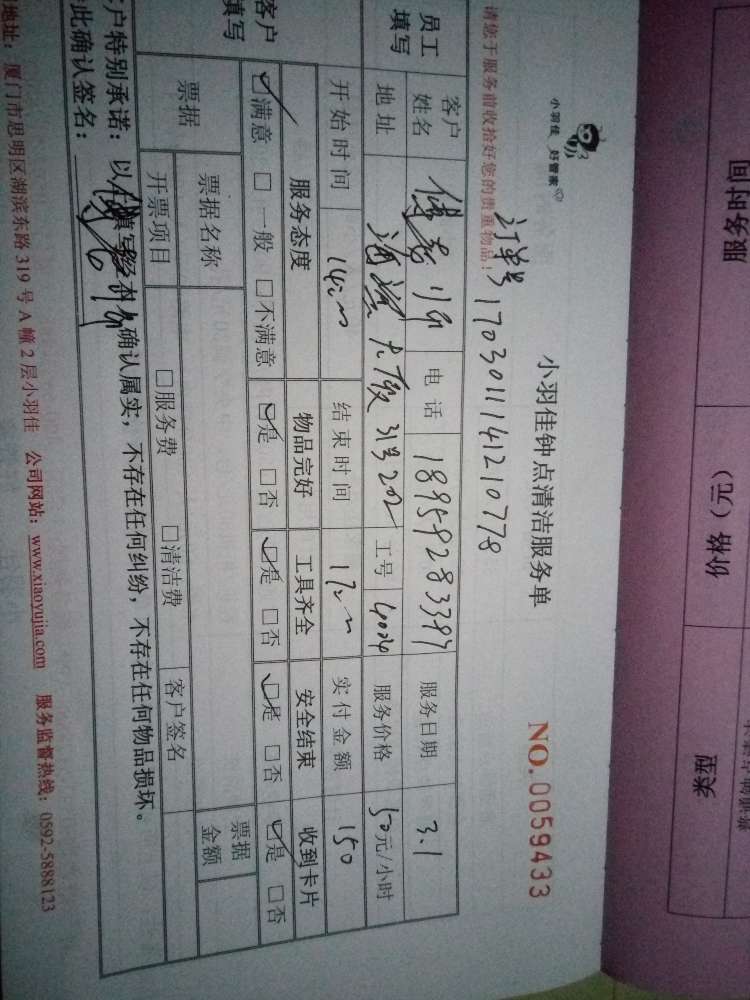 服务时间
价格（元）
类型
小羽佳 好管家
小羽佳钟点清洁服务单
NO.0059433
请您于服务前收拾好您的贵重物品！
订单号 1703011141210778
员工填写
客户姓名
电话
服务日期 3.1
地址
31号202
工号
服务价格 50元/小时
开始时间 14:00
结束时间 17:00
实付金额 150
客户填写
服务态度 物品完好 工具齐全 安全结束 收到卡片
☑满意 □一般 □不满意 ☑是 □否 ☑是 □否 ☑是 □否 ☑是 □否
票据
票据名称
票据金额
开票项目 □服务费 □清洁费 客户签名
客户特别承诺：以上填写资料 确认属实，不存在任何纠纷，不存在任何物品损坏。
此确认签名：
地址：厦门市思明区湖滨东路 319 号 A 幢 2 层小羽佳 公司网站：www.xiaoyujia.com 服务监督热线：0592-5888123